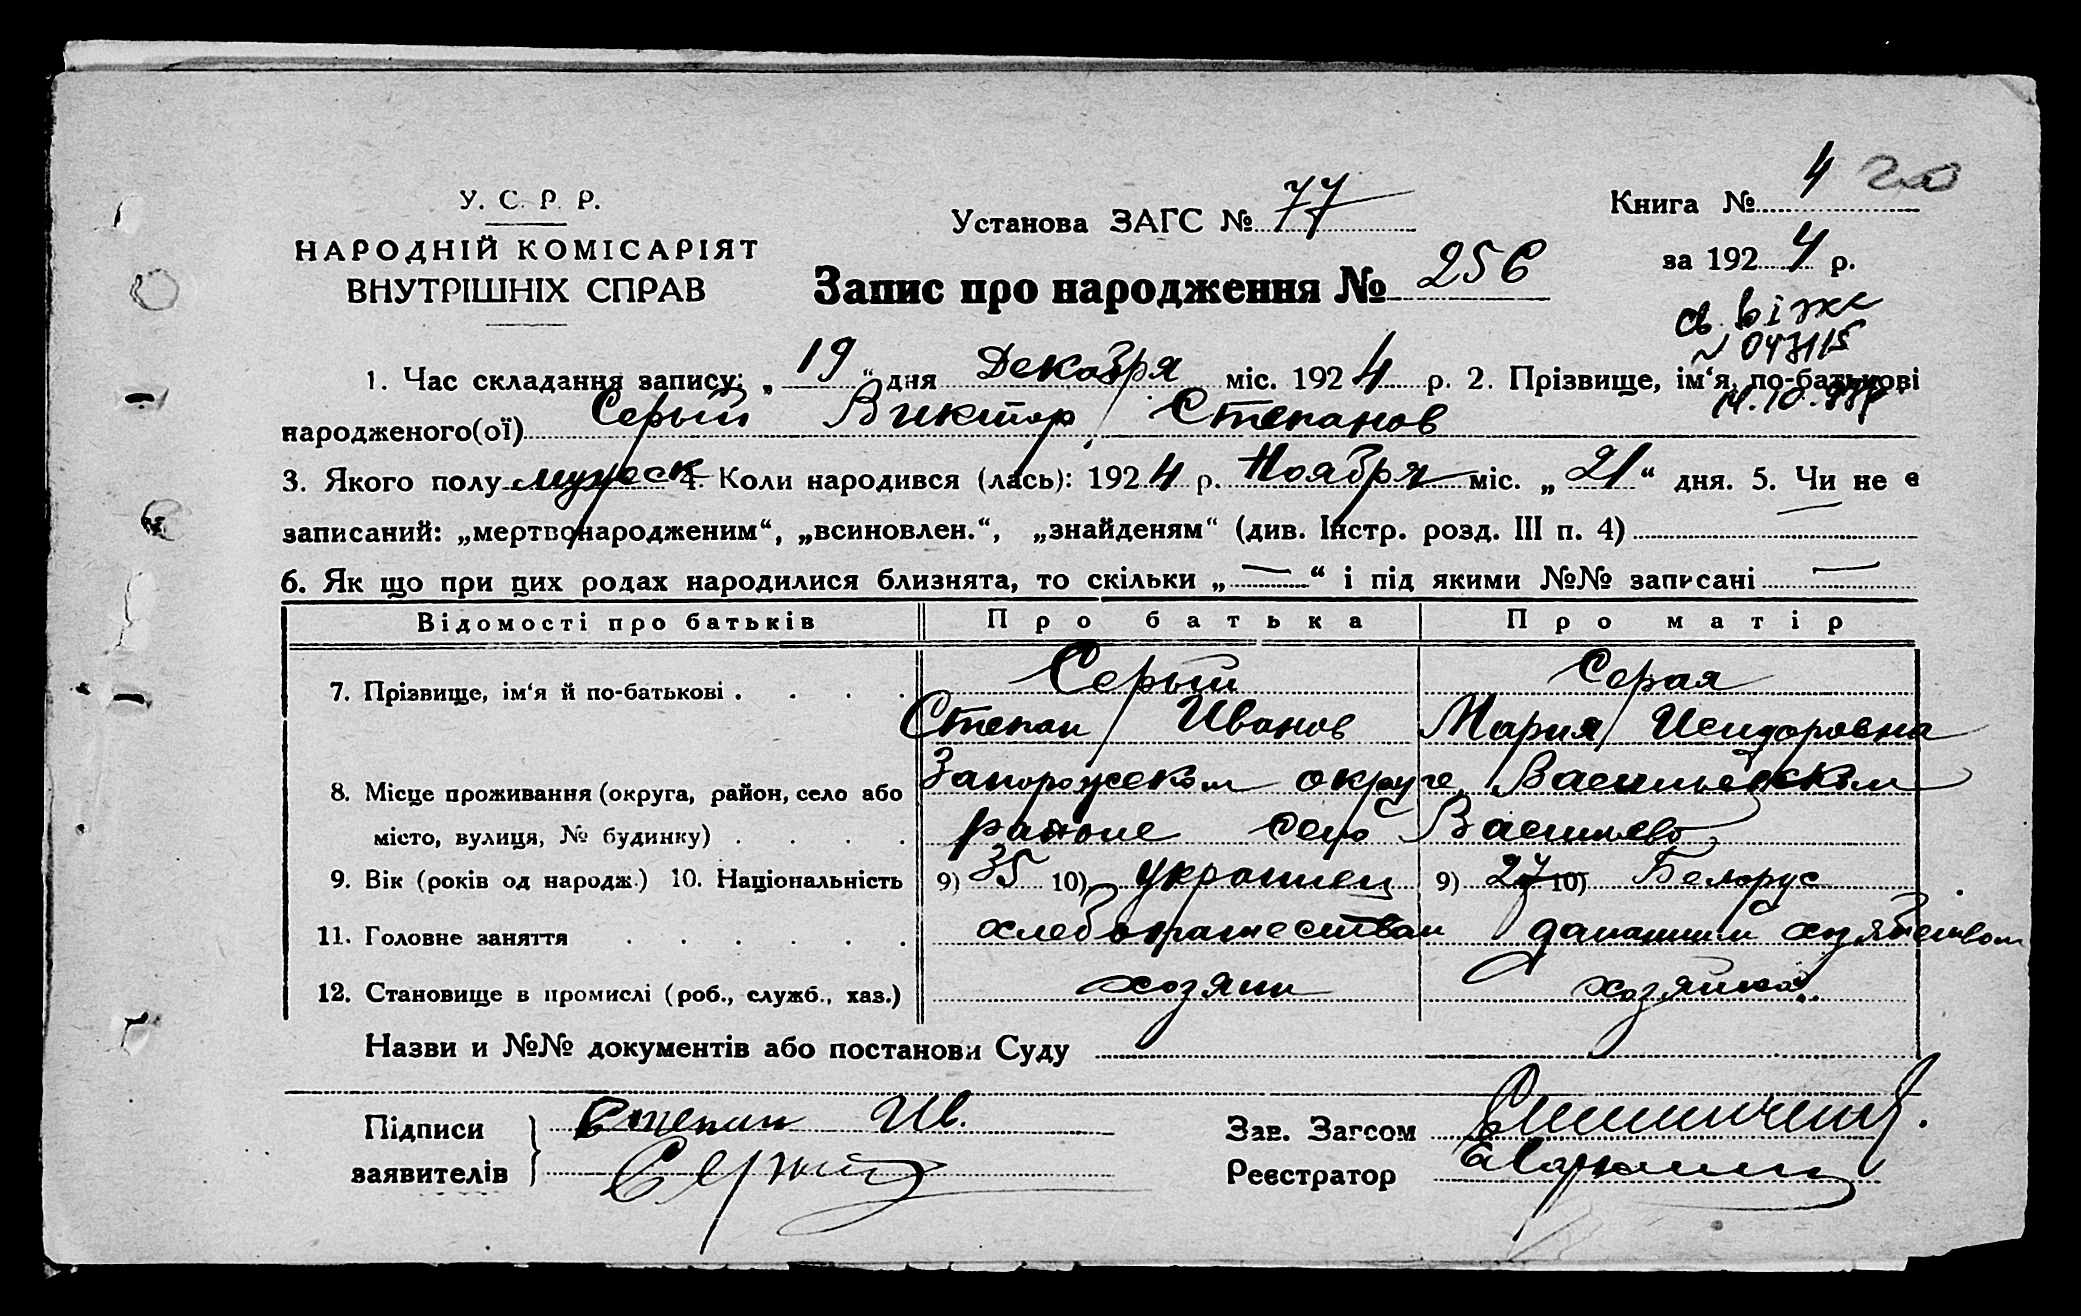 4 20
У. С. Р. Р.
НАРОДНІЙ КОМІСАРІЯТ
ВНУТРІШНІХ СПРАВ
Установа ЗАГС № 77
Книга № 4
за 1924 р.
Запис про народження № 256
св. віже
№ 047115
14.10.
1. Час складання запису: „19“ дня Декабря міс. 1924 р. 2. Прізвище, ім‘я, по-батькові
народженого(ої) Серый Виктор Степанов
3. Якого полу мужеск 4. Коли народився (лась): 1924 р. Ноября міс. „21“ дня. 5. Чи не є
записаний: „мертвонародженим“, „всиновлен.“, „знайденям“ (див. Інстр. розд. III п. 4) —
6. Як що при цих родах народилися близнята, то скільки „—“ і під якими №№ записані —
Відомості про батьків Про батька Про матір
7. Прізвище, ім‘я й по-батькові . . . . Серый Серая
Степан Иванов Мария Исидоровна
8. Місце проживання (округа, район, село або Запорожском округе Васильевском
місто, вулиця, № будинку) . . . . районе село Васильево
9. Вік (років од народж.) 10. Національність 9) 35 10) украинец 9) 27 10) Белорус
11. Головне заняття . . . . . . хлебопашеством данашним хозяйством
12. Становище в промислі (роб., служб., хаз.) хозяин хозяйка
Назви и №№ документів або постанови Суду
Підписи Степан Ив.
заявителів Серый
Зав. Загсом
Реєстратор